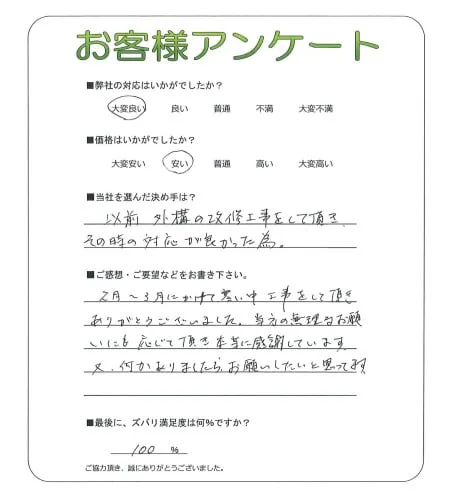 お客様アンケート
■弊社の対応はいかがでしたか?
大変良い 良い 普通 不満 大変不満
■価格はいかがでしたか?
大変安い 安い 普通 高い 大変高い
■当社を選んだ決め手は?
以前 外構の改修工事をして頂き
その時の対応が良かった為。
■ご感想・ご要望などをお書き下さい。
2月~3月にかけて寒い中 工事をして頂き
ありがとうございました。当方の無理なお願
いにも 応じて頂き 本当に感謝しています
又、何かありましたら、お願いしたいと思ってます
■最後に、ズバリ満足度は何%ですか?
100 %
ご協力頂き、誠にありがとうございました。